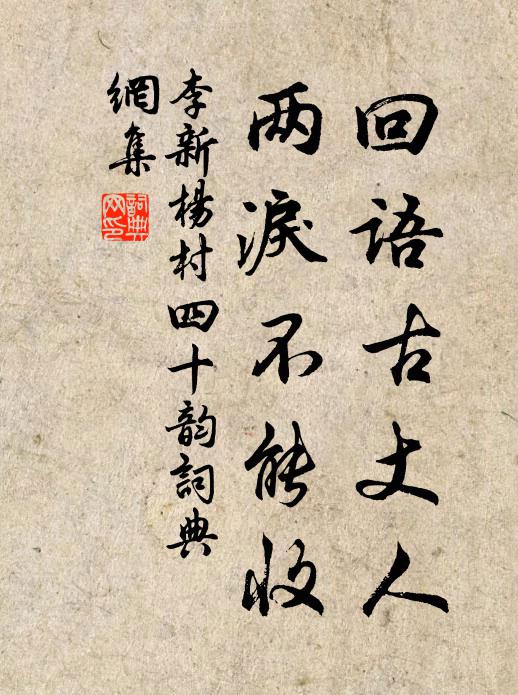 回语古丈人
两淚不能收
李新楊村四十韵詞典
網集
詞典
网印